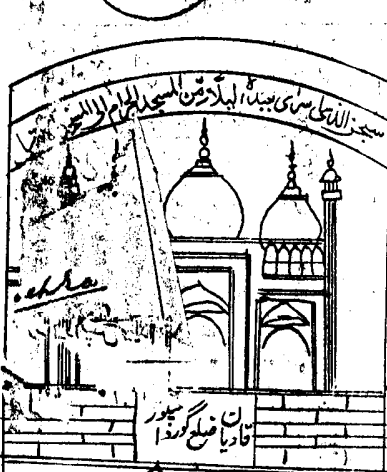 سبحن الذی اسری بعبدہ لیلا من المسجد الحرام الی المسجد
قادیان ضلع گورداسپور